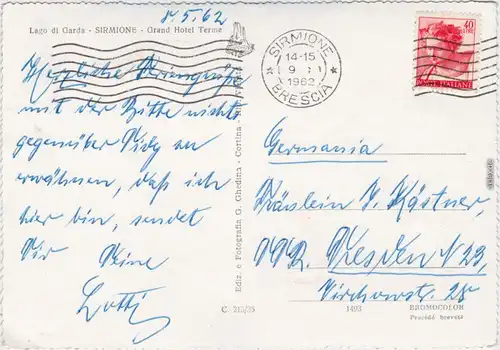 8.5.62
Lago di Garda - SIRMIONE - Grand Hotel Terme
Herzliche Feriengrüße
mit der Bitte nichts
gegenüber
erwähnen, daß ich
hier bin, sendet
Dir Deine
Lotti
Ediz. e Fotografia G. Ghedina - Cortina
SIRMIONE
14-15
9
1962
BRESCIA
40
LIRE
POSTE ITALIANE
Germania
Fräulein J. Kästner,
DDR. Dresden N 23,
Virchowstr. 28
C. 210/35
1493
BROMOCOLOR
Procédé breveté